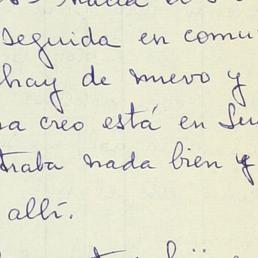 seguida en comu
hay de nuevo y
a creo está en Su
traba nada bien y
allí.